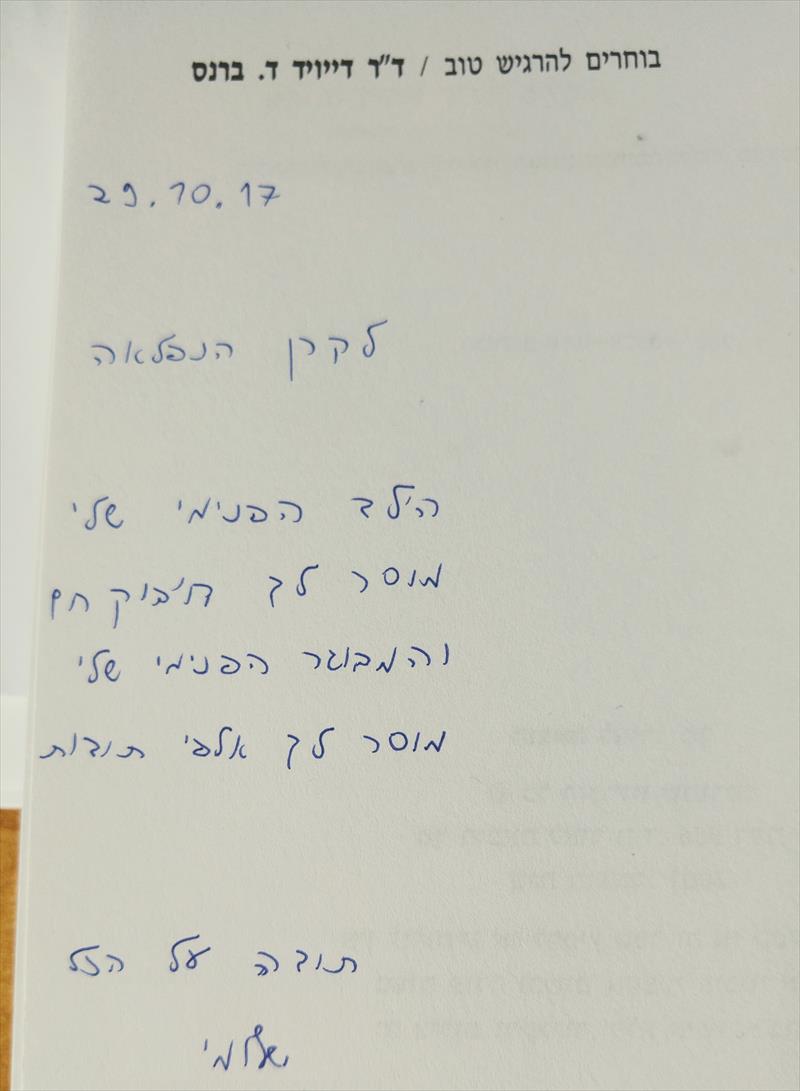 בוחרים להרגיש טוב / ד"ר דייויד ד. ברנס
29.10.17
לקרן הנפלאה
הילד הפנימי שלי
מוסר לך חיבוק חם
והמבוגר הפנימי שלי
מוסר לך אלפי תודות
תודה על הכל